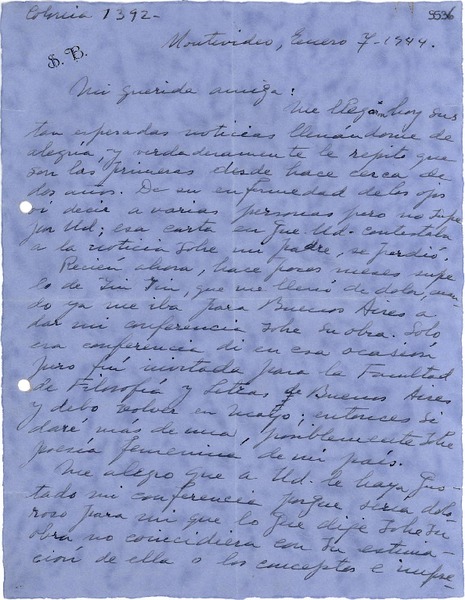 Colonia 1392-
5536
Montevideo, Enero 7-1944.
S. B.
Mi querida amiga:
Me llegan hoy sus
tan esperadas noticias llenándome de
alegría, y verdaderamente le repito que
son las primeras desde hace cerca de
dos años. De su enfermedad de los ojos
oí decir a varias personas pero no supe
por Ud; esa carta en que Ud. contestaba
a la noticia sobre mi padre, se perdió.
Recién ahora, hace pocos meses supe
lo de Yin Yin, que me llenó de dolor, cuan-
do ya me iba para Buenos Aires a
dar mi conferencia sobre su obra. Sólo
esa conferencia di en esa ocasión
pero fuí invitada para la Facultad
de Filosofía y Letras de Buenos Aires
y debo volver en Mayo; entonces sí
daré más de una, posiblemente sobre
poesía femenina de mi país.
Me alegro que a Ud. le haya gus-
tado mi conferencia porque sería dolo-
roso para mí que lo que dije sobre su
obra no coincidiera con su estima-
ción de ella o los conceptos e impre-